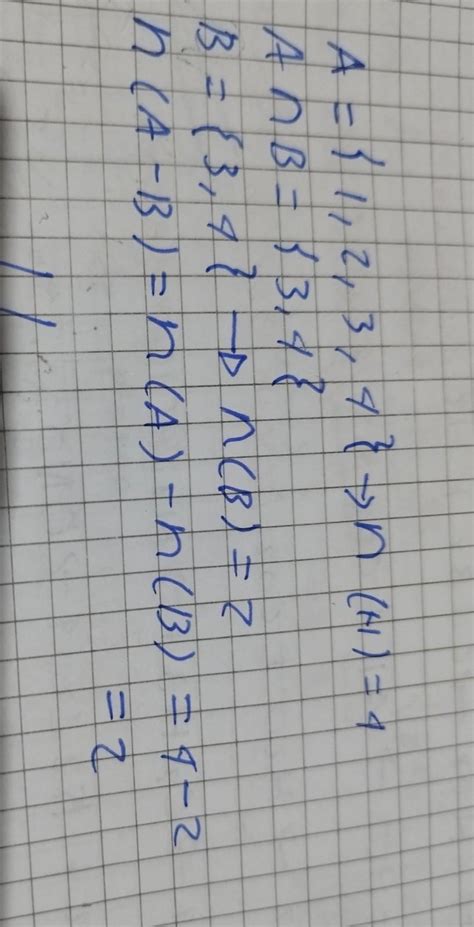 A = { 1, 2, 3, 4 } → n (A) = 4
A ∩ B = { 3, 4 }
B = { 3, 4 } → n(B) = 2
n(A - B) = n(A) - n(B) = 4 - 2
= 2